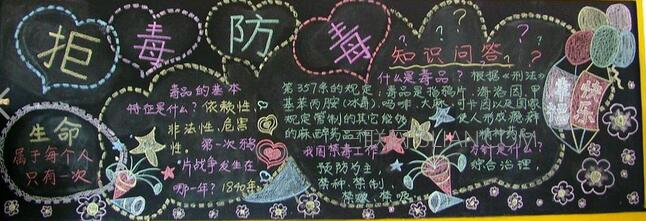 拒毒防毒
知识问答
生命
属于每个人
只有一次
毒品的基本
特征是什么？依赖性，
非法性，危害
性。第一次鸦
片战争发生在
哪一年？1840年
什么是毒品？根据《刑法》
第357条的规定，毒品是指鸦片、海洛因、甲
基苯丙胺（冰毒）、吗啡、大麻、可卡因以及国家
规定管制的其它能够使人形成瘾癖
的麻醉药品和精神药品
我国禁毒工作方针是什么？
预防为主，综合治理，
禁种、禁制、
禁贩、禁吸
幸福
快乐